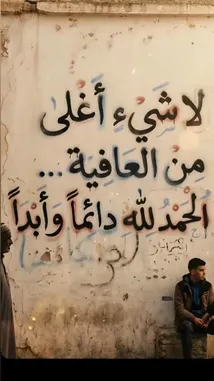 لا شَيْءَ أَغْلىٰ
مِنْ العَافِيَة ...
الْحَمْدُ لله دَائِماً وَأَبْداً